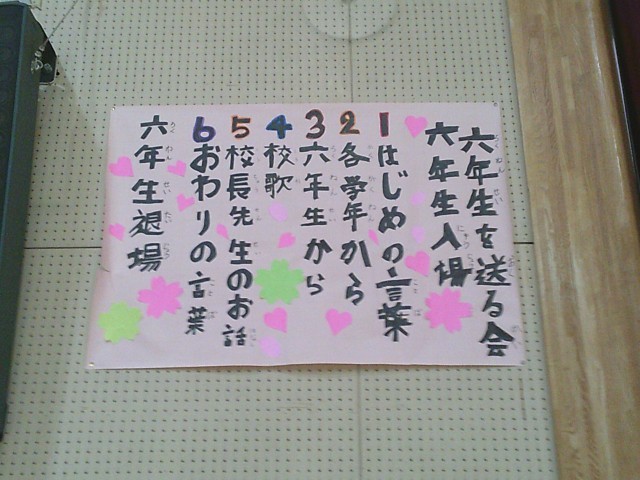 六年生を送る会
六年生入場
1はじめの言葉
2各学年から
3六年生から
4校歌
5校長先生のお話
6おわりの言葉
六年生退場